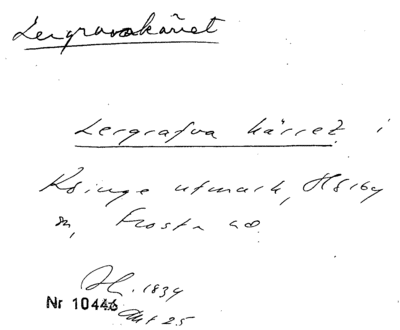 Lergravakärret
Lergrafva kärret i
Ksinge utmark, Hörby
sn, Frosta hd
H. 1834
Nr 10446
Akt 25